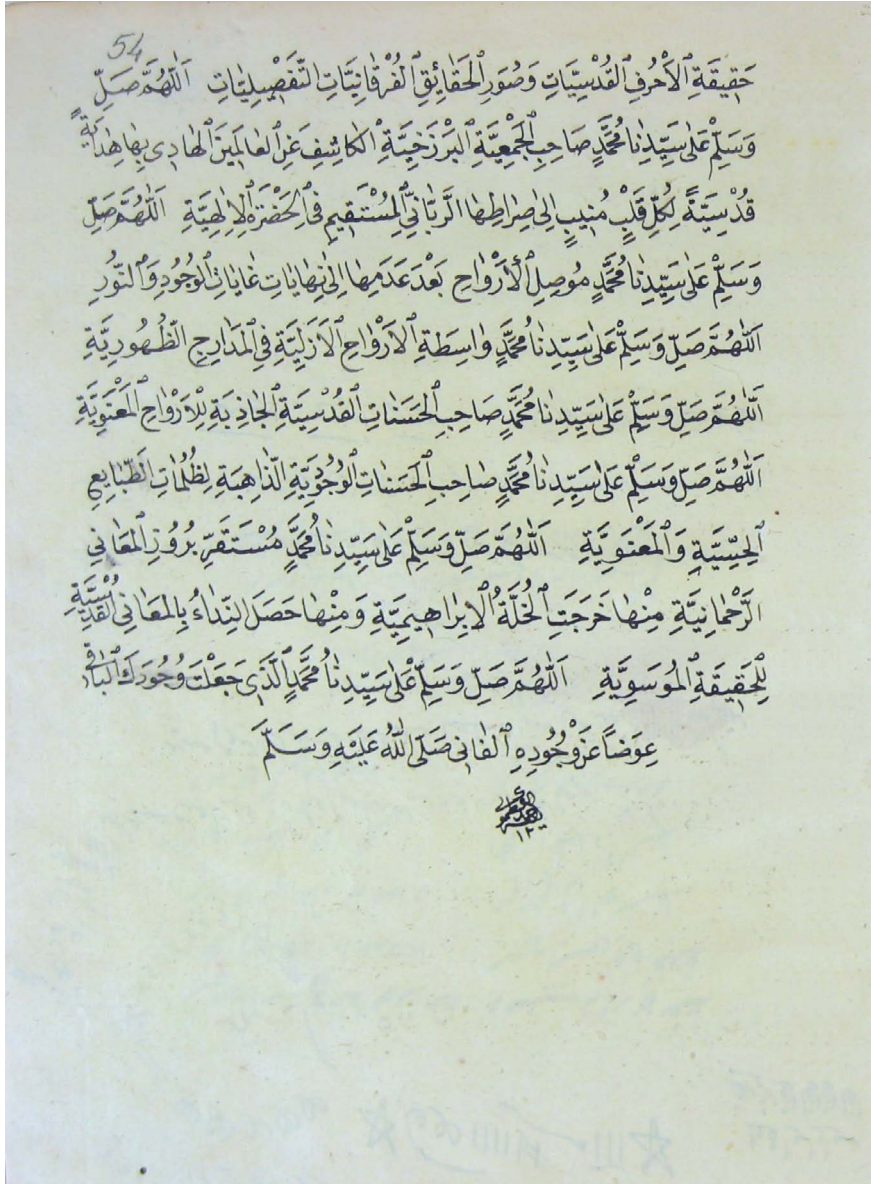 54
حَقِيقَةِ ٱلْأَحْرُفِ ٱلْقُدْسِيَّاتِ وَصُوَرِ ٱلْحَقَائِقِ ٱلْفُرْقَانِيَّاتِ التَّفْصِيلِيَّاتِ اَللّٰهُمَّ صَلِّ
وَسَلِّمْ عَلٰى سَيِّدِنَا مُحَمَّدٍ صَاحِبِ ٱلْجَمْعِيَّةِ ٱلْبَرْزَخِيَّةِ ٱلْكَاشِفَ عَنِ ٱلْعٰالَمِينَ ٱلْهٰادِى بِهٰا هِدٰايَةً
قُدْسِيَّةً لِكُلِّ قَلْبٍ مُنِيبٍ اِلٰى صِرَاطِهٰا الرَّبّٰانِىِّ ٱلْمُسْتَقِيمِ فِى ٱلْحَضْرَةِ ٱلْإِلٰهِيَّةِ اَللّٰهُمَّ صَلِّ
وَسَلِّمْ عَلٰى سَيِّدِنٰا مُحَمَّدٍ مُوصِلِ ٱلْأَرْوٰاحِ بَعْدَ عَدَمِهٰا اِلٰى نِهٰايٰاتِ غٰايٰاتِ ٱلْوُجُودِ وَٱلنُّورِ
اَللّٰهُمَّ صَلِّ وَسَلِّمْ عَلٰى سَيِّدِنٰا مُحَمَّدٍ وٰاسِطَةِ ٱلْأَرْوٰاحِ ٱلْأَزَلِيَّةِ فِى ٱلْمَدَارِجِ الظُّهُورِيَّةِ
اَللّٰهُمَّ صَلِّ وَسَلِّمْ عَلٰى سَيِّدِنٰا مُحَمَّدٍ صَاحِبِ ٱلْحَسَنٰاتِ ٱلْقُدْسِيَّةِ ٱلْجٰاذِبَةِ لِلْأَرْوٰاحِ ٱلْمَعْنَوِيَّةِ
اَللّٰهُمَّ صَلِّ وَسَلِّمْ عَلٰى سَيِّدِنٰا مُحَمَّدٍ صٰاحِبِ ٱلْحَسَنٰاتِ ٱلْوُجُودِيَّةِ الذّٰاهِبَةِ لِظُلُمٰاتِ الطَّبٰايِعِ
ٱلْحِسِّيَّةِ وَٱلْمَعْنَوِيَّةِ اَللّٰهُمَّ صَلِّ وَسَلِّمْ عَلٰى سَيِّدِنٰا مُحَمَّدٍ مُسْتَقَرِّ بُرُوزِ ٱلْمَعٰانِى
الرَّحْمٰانِيَّةِ مِنْهٰا خَرَجَتِ ٱلْخُلَّةُ ٱلْإِبْرٰاهِيمِيَّةِ وَمِنْهٰا حَصَلَ النِّدٰاءُ بِٱلْمَعٰانِى ٱلْقُدْسِيَّةِ
لِلْحَقِيقَةِ ٱلْمُوسَوِيَّةِ اَللّٰهُمَّ صَلِّ وَسَلِّمْ عَلٰى سَيِّدِنٰا مُحَمَّدٍ ٱلَّذِى جَعَلْتَ وُجُودَكَ ٱلْبٰاقِى
عِوَضًا عَنْ وُجُودِهِ ٱلْفٰانِى صَلَّى اللّٰهُ عَلَيْهِ وَسَلَّمَ